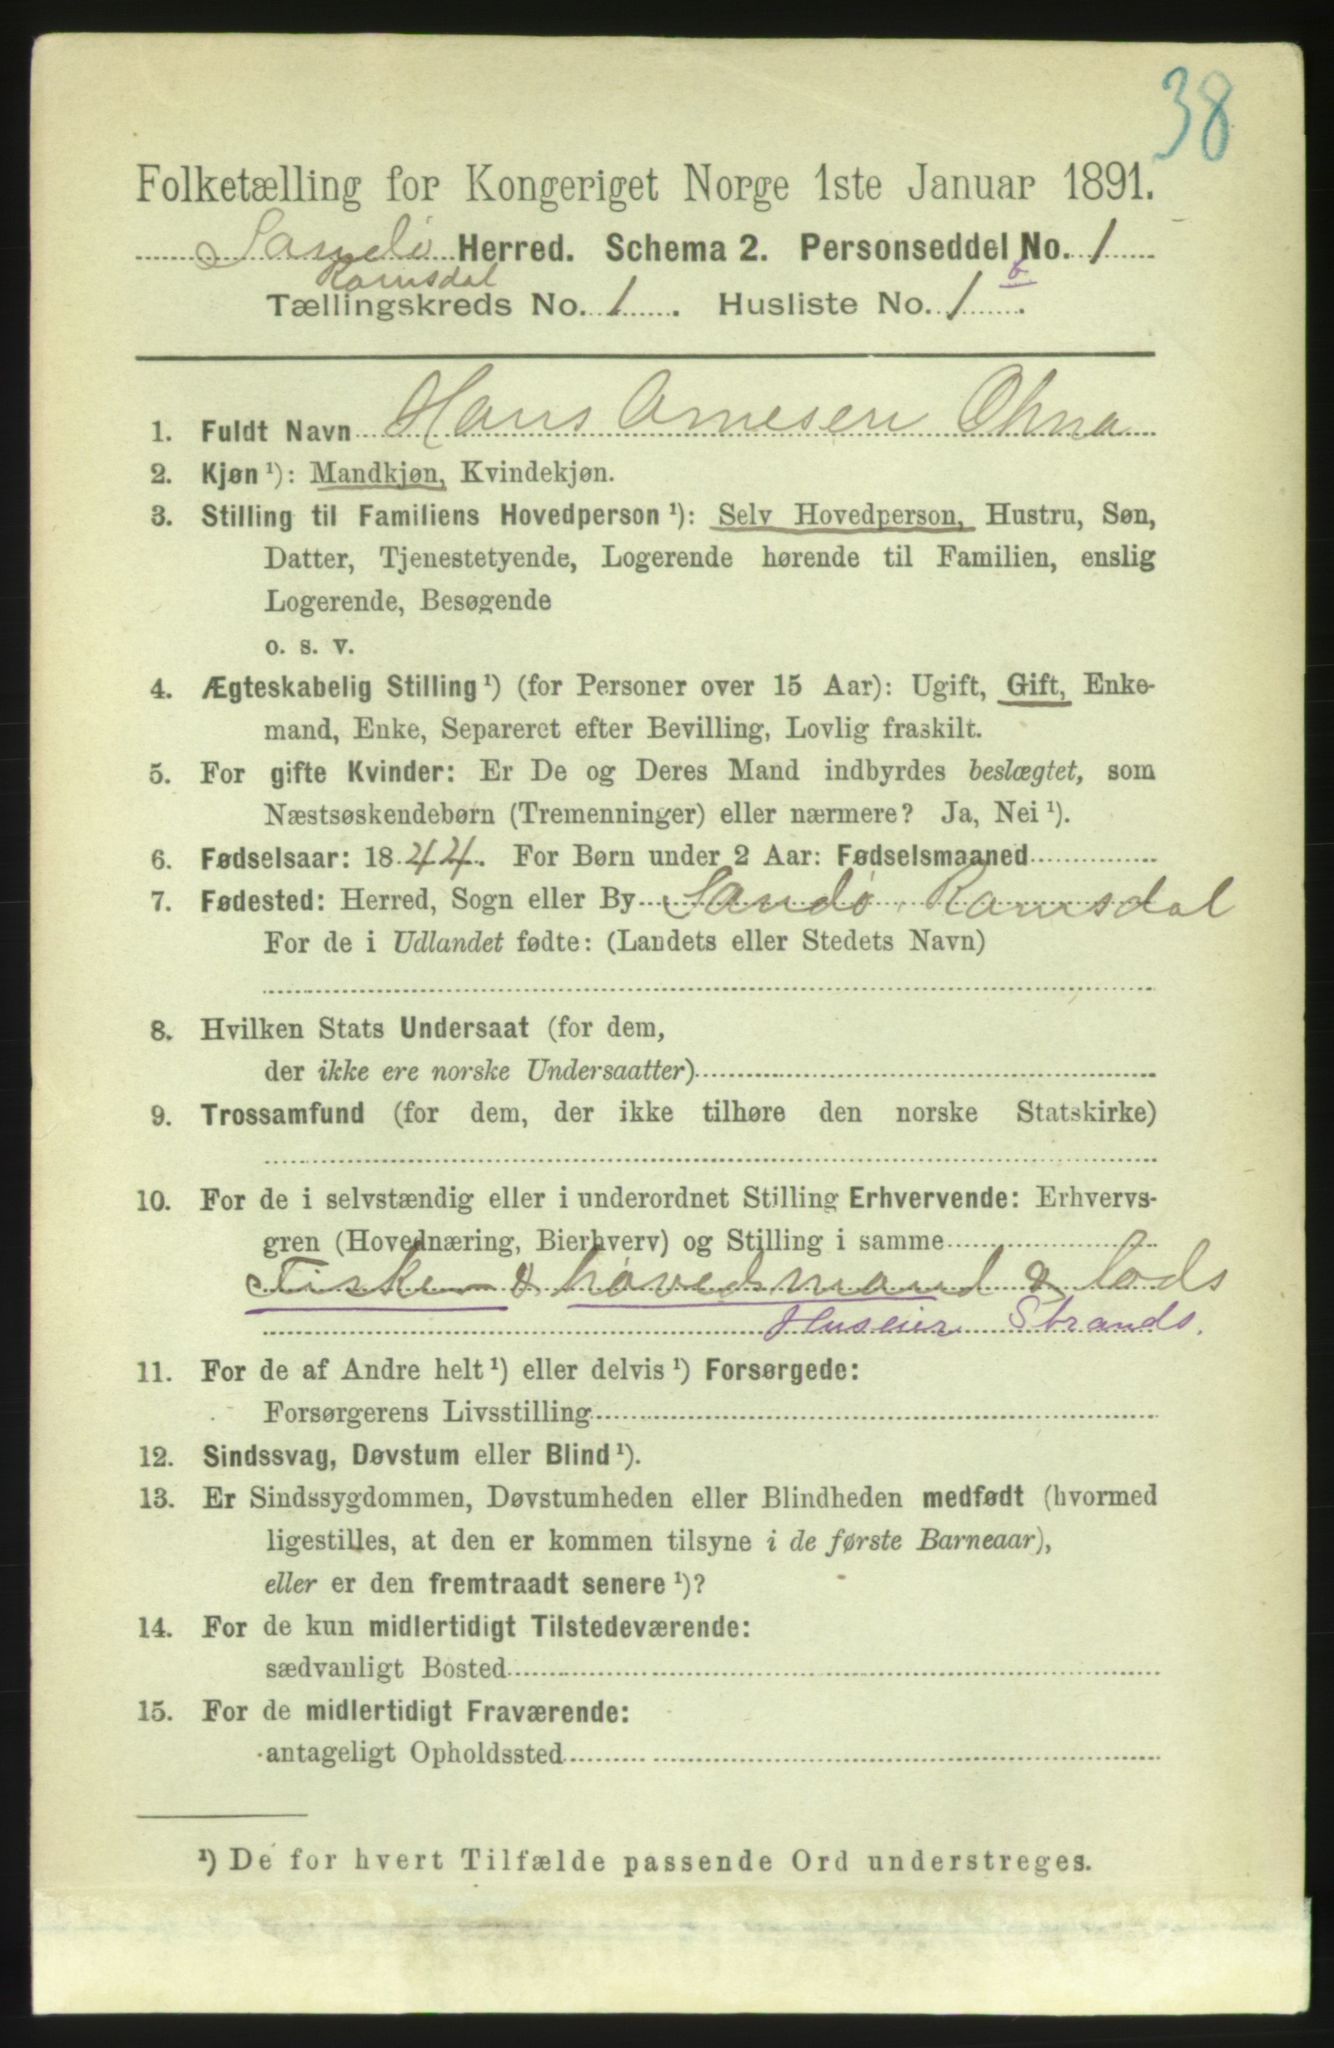 38
Folketælling for Kongeriget Norge 1ste Januar 1891.
Sandö Herred. Schema 2. Personseddel No. 1
Romsdal
b
Tællingskreds No. 1. Husliste No. 1.
1. Fuldt Navn Hans Arnesen Ohna
2. Kjøn ¹): Mandkjøn, Kvindekjøn.
3. Stilling til Familiens Hovedperson ¹): Selv Hovedperson, Hustru, Søn,
Datter, Tjenestetyende, Logerende hørende til Familien, enslig
Logerende, Besøgende
o. s. v.
4. Ægteskabelig Stilling ¹) (for Personer over 15 Aar): Ugift, Gift, Enke-
mand, Enke, Separeret efter Bevilling, Lovlig fraskilt.
5. For gifte Kvinder: Er De og Deres Mand indbyrdes beslægtet, som
Næstsøskendebørn (Tremenninger) eller nærmere? Ja, Nei ¹).
6. Fødselsaar: 1844. For Børn under 2 Aar: Fødselsmaaned
7. Fødested: Herred, Sogn eller By Sandö Romsdal
For de i Udlandet fødte: (Landets eller Stedets Navn)
8. Hvilken Stats Undersaat (for dem,
der ikke ere norske Undersaatter)
9. Trossamfund (for dem, der ikke tilhøre den norske Statskirke)
10. For de i selvstændig eller i underordnet Stilling Erhvervende: Erhvervs-
gren (Hovednæring, Bierhverv) og Stilling i samme
Fisker & hövedsmand & lods
Huseier Strands.
11. For de af Andre helt ¹) eller delvis ¹) Forsørgede:
Forsørgerens Livsstilling
12. Sindssvag, Døvstum eller Blind ¹).
13. Er Sindssygdommen, Døvstumheden eller Blindheden medfødt (hvormed
ligestilles, at den er kommen tilsyne i de første Barneaar),
eller er den fremtraadt senere ¹)?
14. For de kun midlertidigt Tilstedeværende:
sædvanligt Bosted
15. For de midlertidigt Fraværende:
antageligt Opholdssted
¹) De for hvert Tilfælde passende Ord understreges.